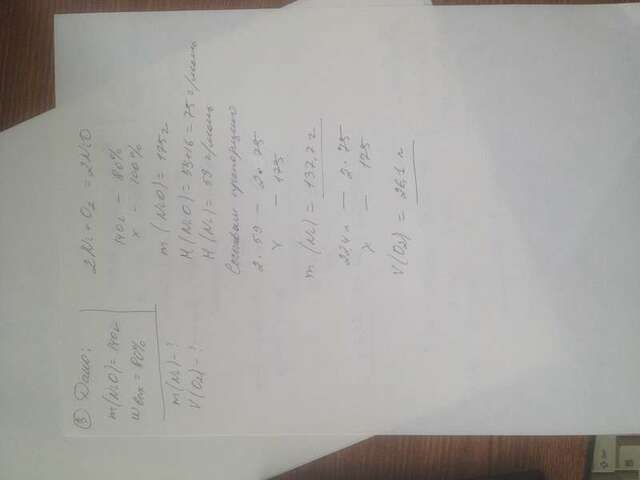 ⑧ Дано:
m(NiO) = 140г
wвых = 80%
m(Ni) - ?
V(O2) - ?
2Ni + O2 = 2NiO
140г - 80%
x - 100%
m (NiO) = 175г
M(NiO) = 59+16 = 75 г/моль
M(Ni) = 59 г/моль
Составим пропорцию
2 · 59 - 2 · 75
x - 175
m (Ni) = 137,7 г
22,4л - 2 · 75
x - 175
V(O2) = 26,1 л